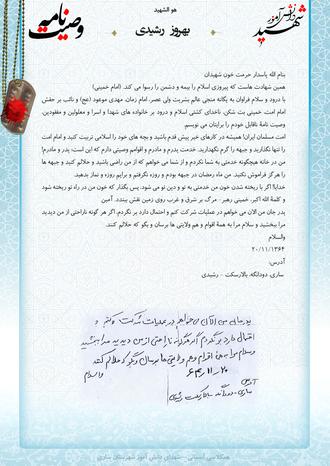 هو الشهید
شهید دانش آموز
بهروز رشیدی
وصیت نامه
بنام الله پاسدار حرمت خون شهیدان
همین شهادت هاست که پیروزی اسلام را بیمه و دشمن را رسوا می کند. (امام خمینی)
با درود و سلام فراوان به یگانه منجی عالم بشریت ولی عصر، امام زمان، مهدی موعود (عج) و نائب بر حقش
امام امت، خمینی بت شکن، ناخدای کشتی اسلام و درود بر خانواده های شهدا و اسرا و معلولین و مفقودین،
وصیت نامۀ بقابل خودم را برایتان می نویسم.
امت مسلمان ایران! همیشه در کارهای خیر پیش قدم باشید و بچه های خود را اسلامی تربیت کنید و امام امت
را تنها نگذارید و جبهه را گرم نگهدارید. خدمت پدرم و مادرم و اقوامم وصیتی دارم که این است: پدر و مادرم!
من در خانه هیچگونه خدمتی به شما نکردم و از شما می خواهم که از من راضی باشید و حلالم کنید و جبهه ها
را هرگز فراموش نکنید. من ماه رمضان در جبهه بودم و روزه نگرفتم و برایم روزه و نماز بدهید.
خدایا! اگر با ریخته شدن خون من خدمتی به تو و دین تو می شود، پس بگذار که خون من در راه تو ریخته شود
و کلمۀ الله اکبر، خمینی رهبر - مرگ بر شرق و غرب روی زمین نقش ببندد. آمین
پدر جان من الان می خواهم در عملیات شرکت کنم و احتمال دارد بر نگردم. اگر هر گونه ناراحتی از من دیدید
مرا ببخشید و سلام مرا به همۀ اقوام و هم ولایتی ها برسان و بگو که حلالم کنند.
والسلام
۲۰/۱۱/۱۳۶۴
آدرس:
ساری، دودانگه، بالارسکت - رشیدی
پدر جان من الان می خواهم در عملیات شرکت کنم و
احتمال دارد برنگردم اگر هر گونه ناراحتی از من دیدید مرا ببخشید
و سلام مرا به همه اقوام و هم ولایتی ها برسان و بگو که حلالم کنند
۲۰-۱۱-۶۴
والسلام
آدرس
ساری - دودانگه رشیدی
همکلاسی آسمانی - شهدای دانش آموز شهرستان ساری